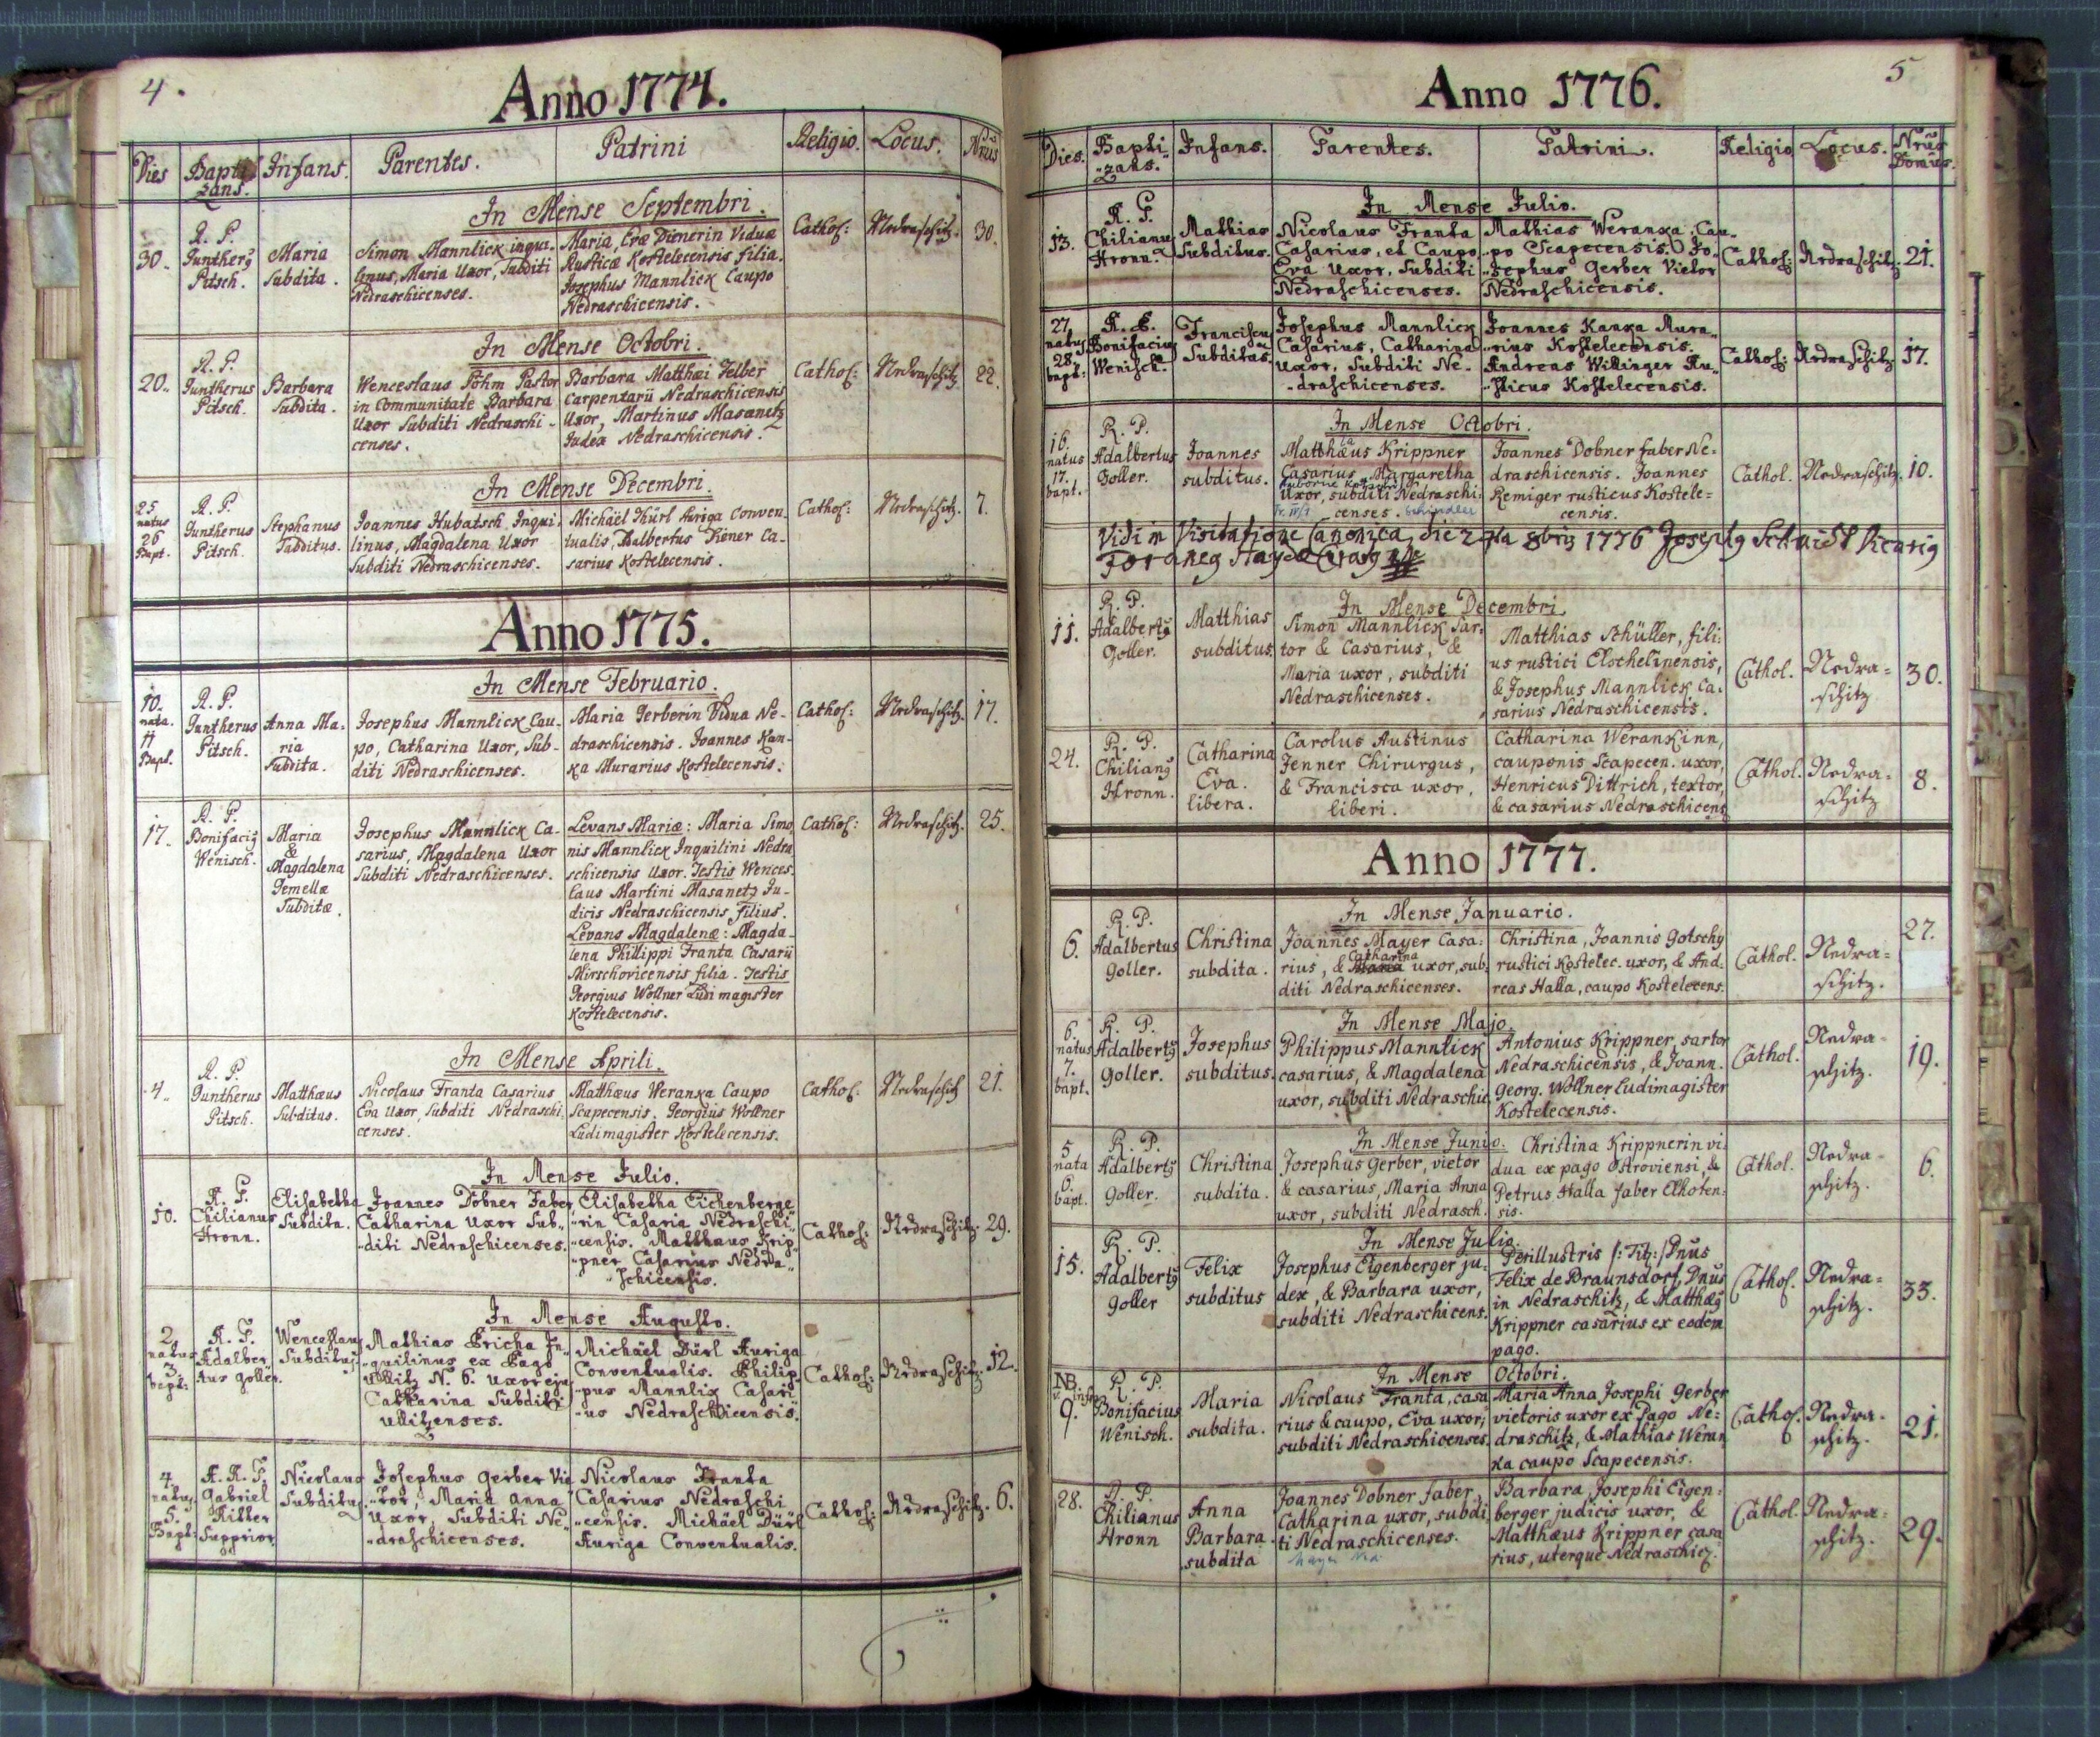 4.
Anno 1774.
Dies Baptizans. Infans. Parentes. Patrini Religio. Locus. Nrus
In Mense Septembri.
30. R. P. Guntherg Pitsch.
Maria Subdita.
Simon Mannlick inqui-
linus, Maria Uxor, Subditi
Nedraschicenses.
Maria, Evæ Dienerin Viduæ
Rusticæ Kostelecensis filia.
Josephus Mannlick Caupo
Nedraschicensis.
Cathol: Nedraschitz. 30.
In Mense Octobri.
20. R. P. Guntherus Pitsch.
Barbara Subdita.
Wenceslaus Böhm Pastor
in Communitate Barbara
Uxor Subditi Nedraschi-
censes.
Barbara Matthæi Felber
Carpentarii Nedraschicensis
Uxor, Martinus Masanetz
Judex Nedraschicensis.
Cathol: Nedraschitz. 22.
In Mense Decembri.
25 natus 26 Bapt.
R. P. Guntherus Pitsch.
Stephanus Subditus.
Joannes Hubatsch Inqui-
linus, Magdalena Uxor
Subditi Nedraschicenses.
Michaël Thürl Auriga Conven-
tualis, Adalbertus Diener Ca-
sarius Kostelecensis.
Cathol: Nedraschitz. 7.
Anno 1775.
In Mense Februario.
10. nata. 11 Bapt.
R. P. Guntherus Pitsch.
Anna Ma-
ria
Subdita.
Josephus Mannlick Cau-
po, Catharina Uxor, Sub-
diti Nedraschicenses.
Maria Gerberin Vidua Ne-
draschicensis. Joannes Kan-
ka Murarius Kostelecensis.
Cathol: Nedraschitz. 17.
17. R. P. Bonifacig Wenisch.
Maria
&
Magdalena
Gemellæ
Subditæ.
Josephus Mannlick Ca-
sarius, Magdalena Uxor
Subditi Nedraschicenses.
Levans Mariæ: Maria Simo
nis Mannlick Inquilini Nedra
schicensis Uxor. Testis Wences-
laus Martini Masanetz Ju-
dicis Nedraschicensis Filius.
Levans Magdalenæ: Magda-
lena Phillippi Franta Casarii
Mirschovicensis filia. Testis
Georgius Wollner Ludi magister
Kostelecensis.
Cathol: Nedraschitz. 25.
In Mense Aprili.
4. R. P. Guntherus Pitsch.
Matthæus Subditus.
Nicolaus Franta Casarius
Eva Uxor, Subditi Nedraschi-
censes.
Matthæus Weranka Caupo
Scapecensis. Georgius Wollner
Ludimagister Kostelecensis.
Cathol: Nedraschitz 21.
In Mense Julio.
10. R. P. Chilianus Hronn.
Elisabetha Subdita.
Joannes Dobner Faber
Catharina Uxor Sub-
diti Nedraschicenses.
Elisabetha Eichenberge-
rin Casaria Nedraschi-
censis. Matthæus Krip-
pner Casarius Nedra-
schicensis.
Cathol: Nedraschitz. 29.
In Mense Augusto.
2. natus 3. bapt:
R. P. Adalber-
tus Goller.
Wenceslaus Subditus
Mathias Pricha In-
quilinus ex Pago
Ullitz N. 6. Uxor ejus
Catharina Subditi
Ullitzenses.
Michaël Dürl Auriga
Conventualis. Philip-
pus Mannlik Casari-
us Nedraschicensis.
Cathol: Nedraschitz. 12.
4. natus 5. Bapt:
A. R. P. Gabriel Ritter Supprior
Nicolaus Subditus
Josephus Gerber Vie-
tor, Maria Anna
Uxor, Subditi Ne-
draschicenses.
Nicolaus Franta
Casarius Nedraschi
censis. Michaël Dürl
Auriga Conventualis.
Cathol: Nedraschitz. 6.
5
Anno 1776.
Dies. Baptizans. Infans. Parentes. Patrini. Religio Locus. Nrus Domus.
In Mense Julio.
13. R. P. Chilianus Hronn.
Mathias Subditus.
Nicolaus Franta
Casarius, et Caupo
Eva Uxor, Subditi
Nedraschicenses.
Mathias Weranka, Cau-
po Scapecensis. Jo-
sephus Gerber Vietor
Nedraschicensis.
Cathol: Nedraschitz. 21.
27. natus 28. bapt:
R. P. Bonifacius Wenisch.
Franciscus Subditus.
Josephus Mannlick
Casarius, Catharina
Uxor, Subditi Ne-
draschicenses.
Joannes Kanka Mura-
rius Kostelecensis.
Andreas Willinger Ru-
sticus Kostelecensis.
Cathol: Nedraschitz 17.
In Mense Octobri.
16. natus 17. bapt.
R. P. Adalbertus Goller.
Joannes subditus.
Matthæus Krippner
Casarius, Margaretha
Uxor, subditi Nedraschi-
censes. Schindler
Joannes Dobner faber Ne-
draschicensis. Joannes
Remiger rusticus Kostele-
censis.
Cathol. Nedraschitz. 10.
Vidi in Visitatione Canonica die 8bris 1776 Josephg Schmidt Vicarig
Foraneg
In Mense Decembri.
11. R. P. Adalbertg Goller.
Matthias subditus.
Simon Mannlick Sar-
tor & Casarius, &
Maria uxor, subditi
Nedraschicenses.
Matthias Schüller, fili-
us rustici Elschelinensis,
& Josephus Mannlick Ca-
sarius Nedraschicensis.
Cathol. Nedra-
schitz 30.
24. R. P. Chiliang Hronn.
Catharina
Eva.
libera.
Carolus Austinus
Jenner Chirurgus,
& Francisca uxor,
liberi.
Catharina Werankinn,
cauponis Scapecen. uxor,
Henricus Dittrich, textor,
& casarius Nedraschicens
Cathol. Nedra-
schitz 8.
Anno 1777.
In Mense Januario.
6. R. P. Adalbertus Goller.
Christina subdita.
Joannes Mayer Casa-
rius, & Catharina uxor, sub-
diti Nedraschicenses.
Christina, Joannis Gotschy
rustici Kostelec. uxor, & And-
reas Halla, caupo Kostelecens.
Cathol. Nedra-
schitz. 27.
In Mense Majo.
6. natus 7. bapt.
R. P. Adalbertg Goller.
Josephus subditus.
Philippus Mannlick
casarius, & Magdalena
uxor, subditi Nedraschic.
Antonius Krippner, sartor
Nedraschicensis, & Joann.
Georg. Wollner Ludimagister
Kostelecensis.
Cathol. Nedra-
schitz. 19.
In Mense Junio.
5 nata 6. bapt.
R. P. Adalbertg Goller.
Christina subdita.
Josephus Gerber, vietor
& casarius, Maria Anna
uxor, subditi Nedrasch.
Christina Krippnerin vi-
dua ex pago Ostroviensi, &
Petrus Halla faber Elhoten-
sis.
Cathol. Nedra-
schitz. 6.
In Mense Julio.
15. R. P. Adalbertg Goller
Felix subditus
Josephus Eigenberger ju-
dex, & Barbara uxor,
subditi Nedraschicens.
Perillustris /: Tit: / Dnus
Felix de Braunsdorf, Dnus
in Nedraschitz, & Matthæg
Krippner casarius ex eodem
pago.
Cathol. Nedra-
schitz. 33.
In Mense Octobri.
NB.
9. R. P. Bonifacius Wenisch.
Maria subdita.
Nicolaus Franta, casa
rius & caupo, Eva uxor,
subditi Nedraschicenses.
Maria Anna Josephi Gerber
vietoris uxor ex Pago Ne-
draschitz, & Mathias Weran
ka caupo Scapecensis.
Cathol. Nedra-
schitz. 21.
28. R. P. Chilianus Hronn
Anna
Barbara
subdita
Joannes Dobner faber,
Catharina uxor, subdi
ti Nedraschicenses.
Barbara, Josephi Eigen-
berger judicis uxor, &
Matthæus Krippner casa
rius, uterque Nedraschicz.
Cathol. Nedra-
schitz. 29.